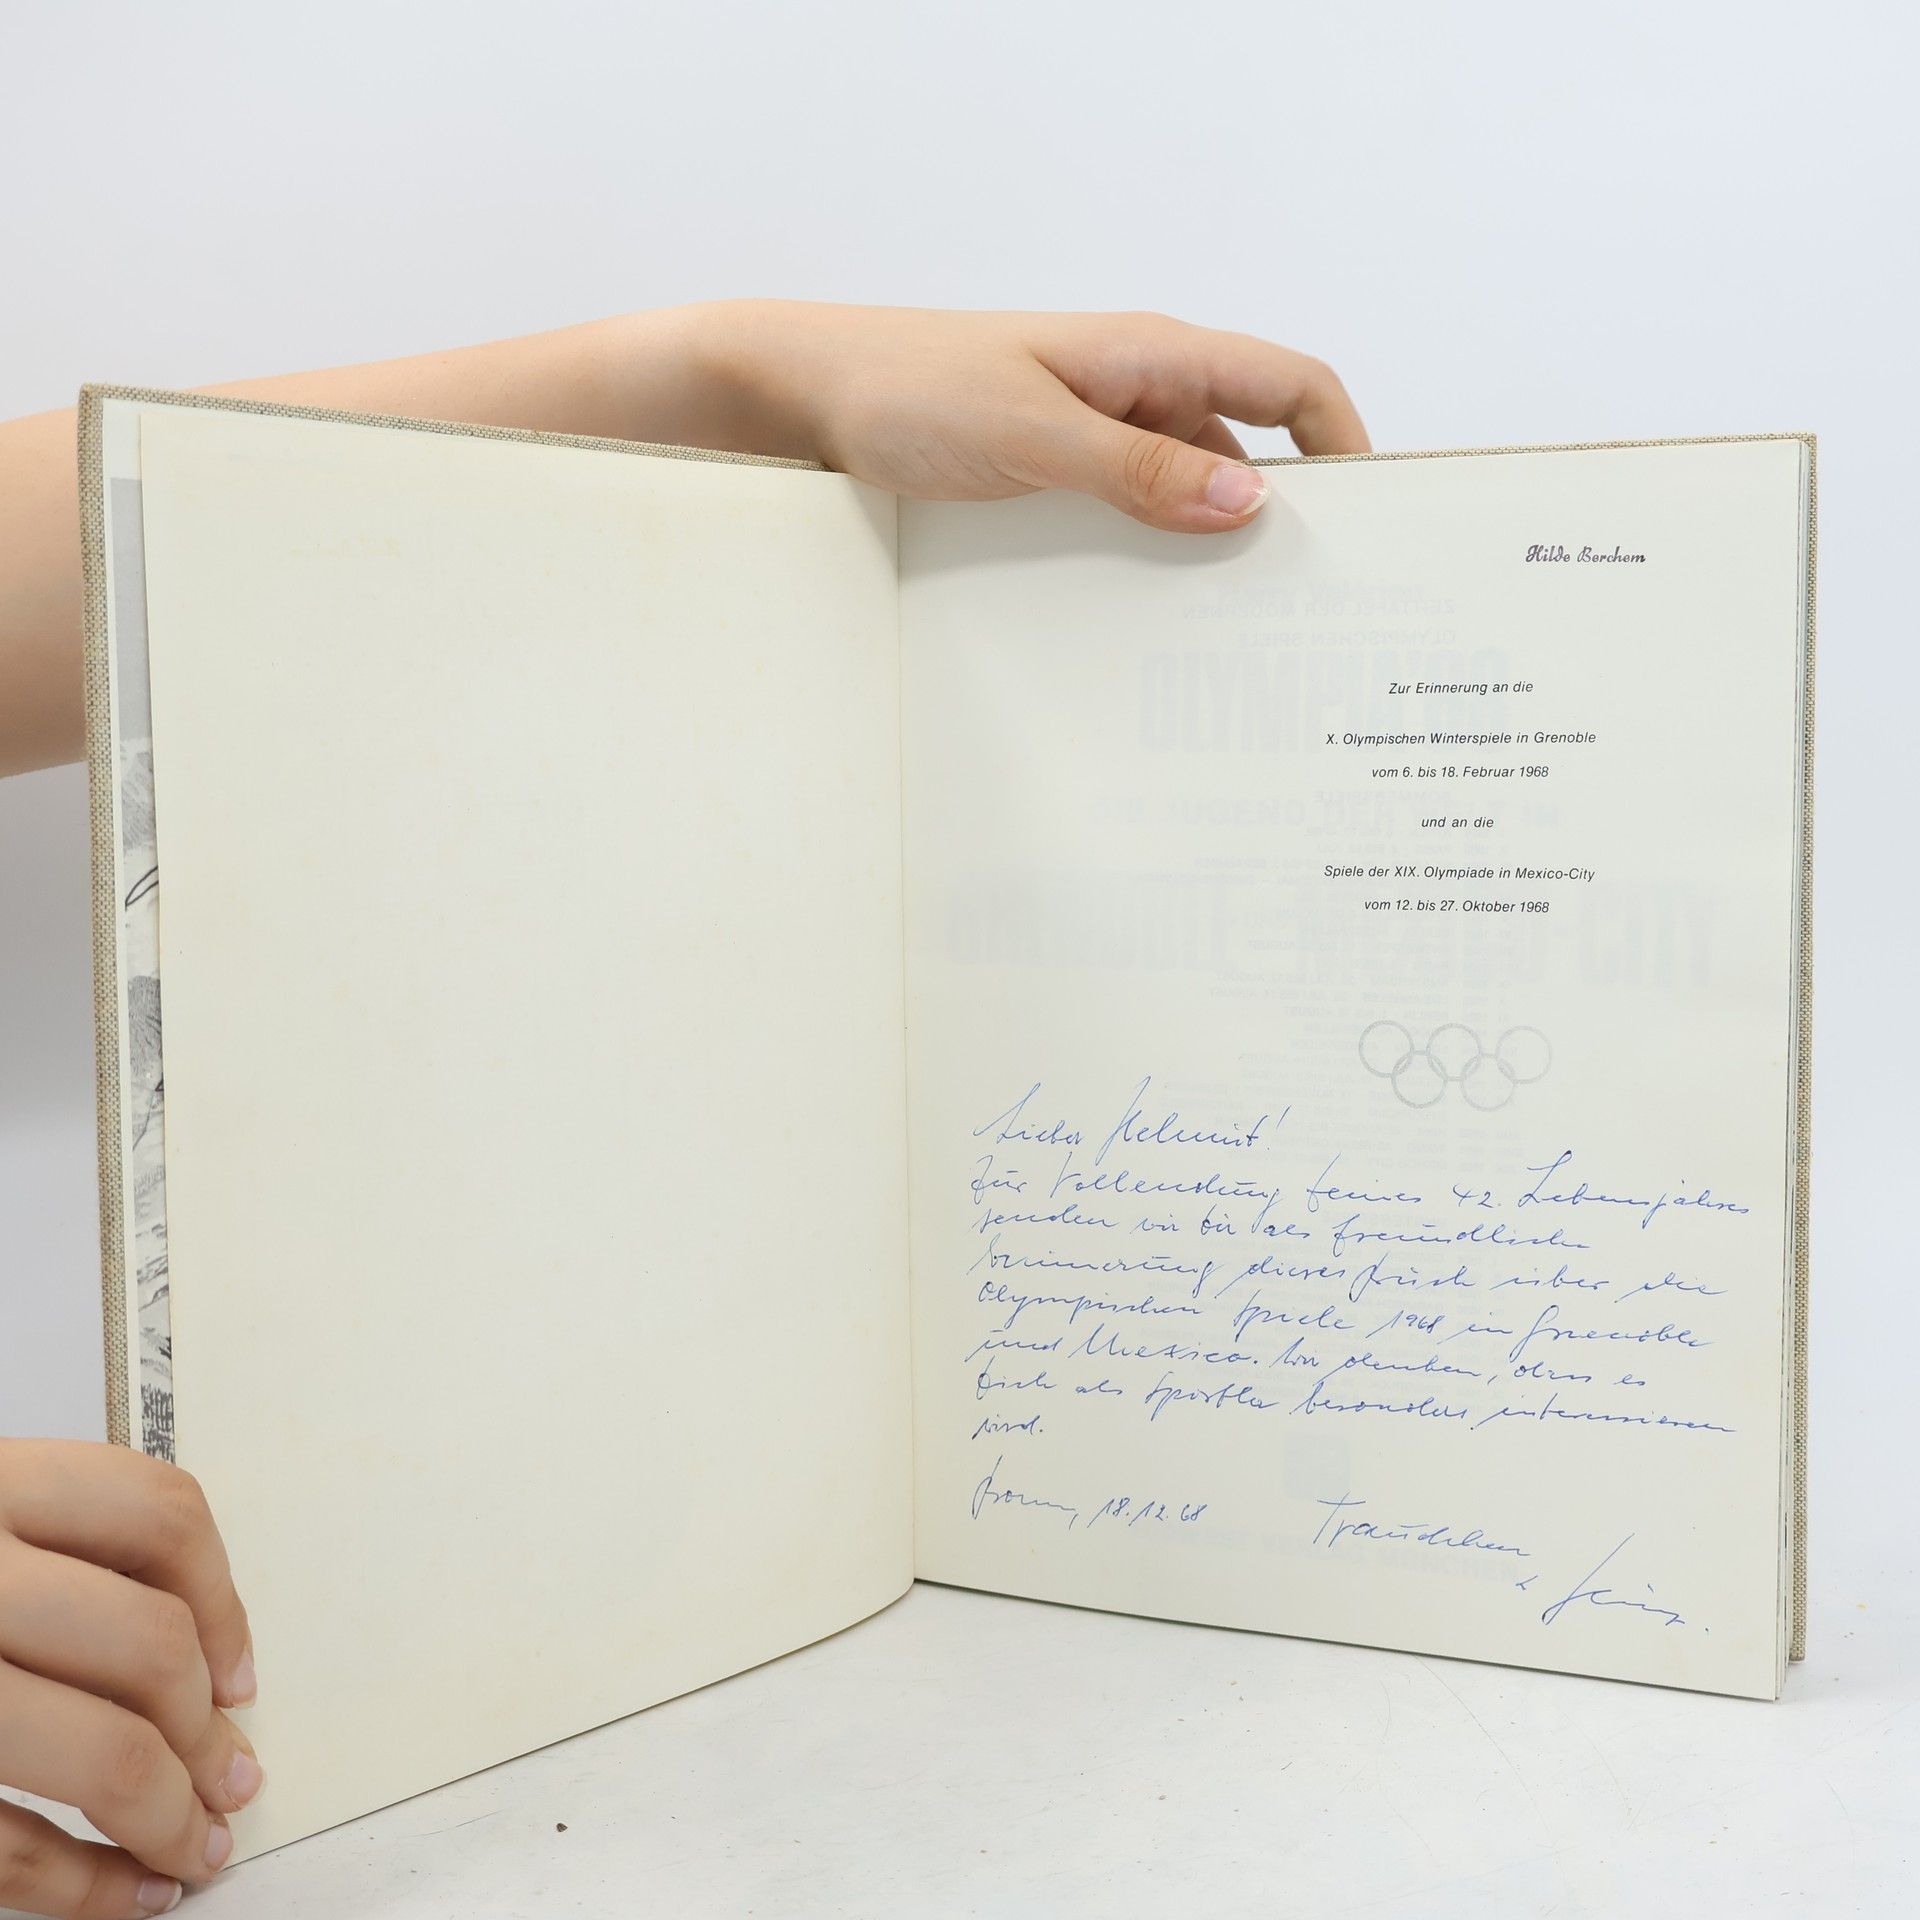 Hilde Berchem
Zur Erinnerung an die
X. Olympischen Winterspiele in Grenoble
vom 6. bis 18. Februar 1968
und an die
Spiele der XIX. Olympiade in Mexico-City
vom 12. bis 27. Oktober 1968
Lieber Helmut!
Zur Vollendung Deines 42. Lebensjahres
senden wir Dir als freundliche
Erinnerung dieses Buch über die
Olympischen Spiele 1968 in Grenoble
und Mexico. Wir denken, dass es
Dich als Sportler besonders interessieren
wird.
Bonn, 18.12.68
Traudchen